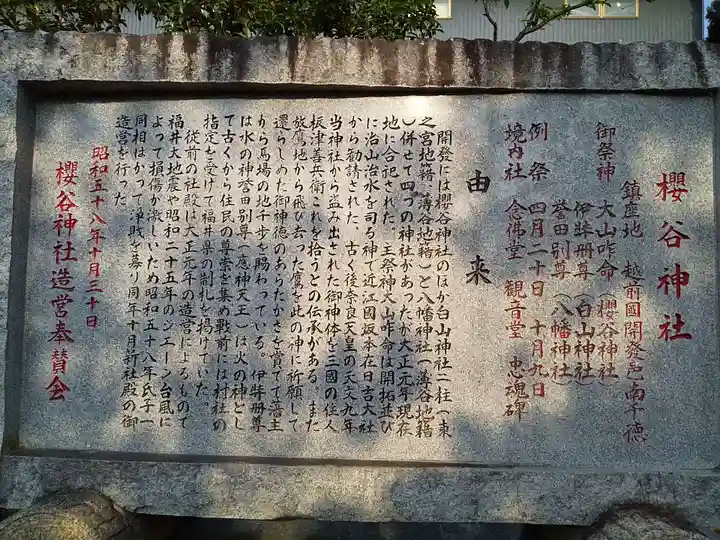 櫻谷神社
鎮座地 越前國開發邑南千徳
御祭神 大山咋命（櫻谷神社）
伊弉册尊（白山神社）
誉田別尊（八幡神社）
例祭 四月二十日 十月九日
境内社 念佛堂 観音堂 忠魂碑
由来
開發には櫻谷神社のほか白山神社二柱（東
之宮地籍、溝谷地籍）と八幡神社（溝谷地籍
）併せて四つの神社があったが大正元年現在
地に合祀された。主祭神大山咋命は開拓並び
に治山治水を司る神で近江國坂本在日吉大社
から勧請された。古く後奈良天皇の天文九年
当神社から盗み出された御神体を三國の住人
板津喜兵衛これを拾うとの伝承がある。また
放鷹地から飛び去った鷹を此の神に祈願して
還らしめた御神徳のあらたかさを賞でて藩主
から馬場の地千歩を賜わっている。伊弉册尊
は水の神誉田別尊（応神天王）は火の神とし
て古くから住民の尊崇を集め戦前には村社の
指定を受けて福井県の制札を掲げていた。
従前の社殿は大正元年の造営によるもので
福井大地震や昭和二十五年のジエーン台風に
よって損傷が激しいため昭和五十八年氏子一
同相はかって浄財を募り同年十月新社殿の御
造営を行った。
昭和五十八年十月三十日
櫻谷神社造営奉賛会